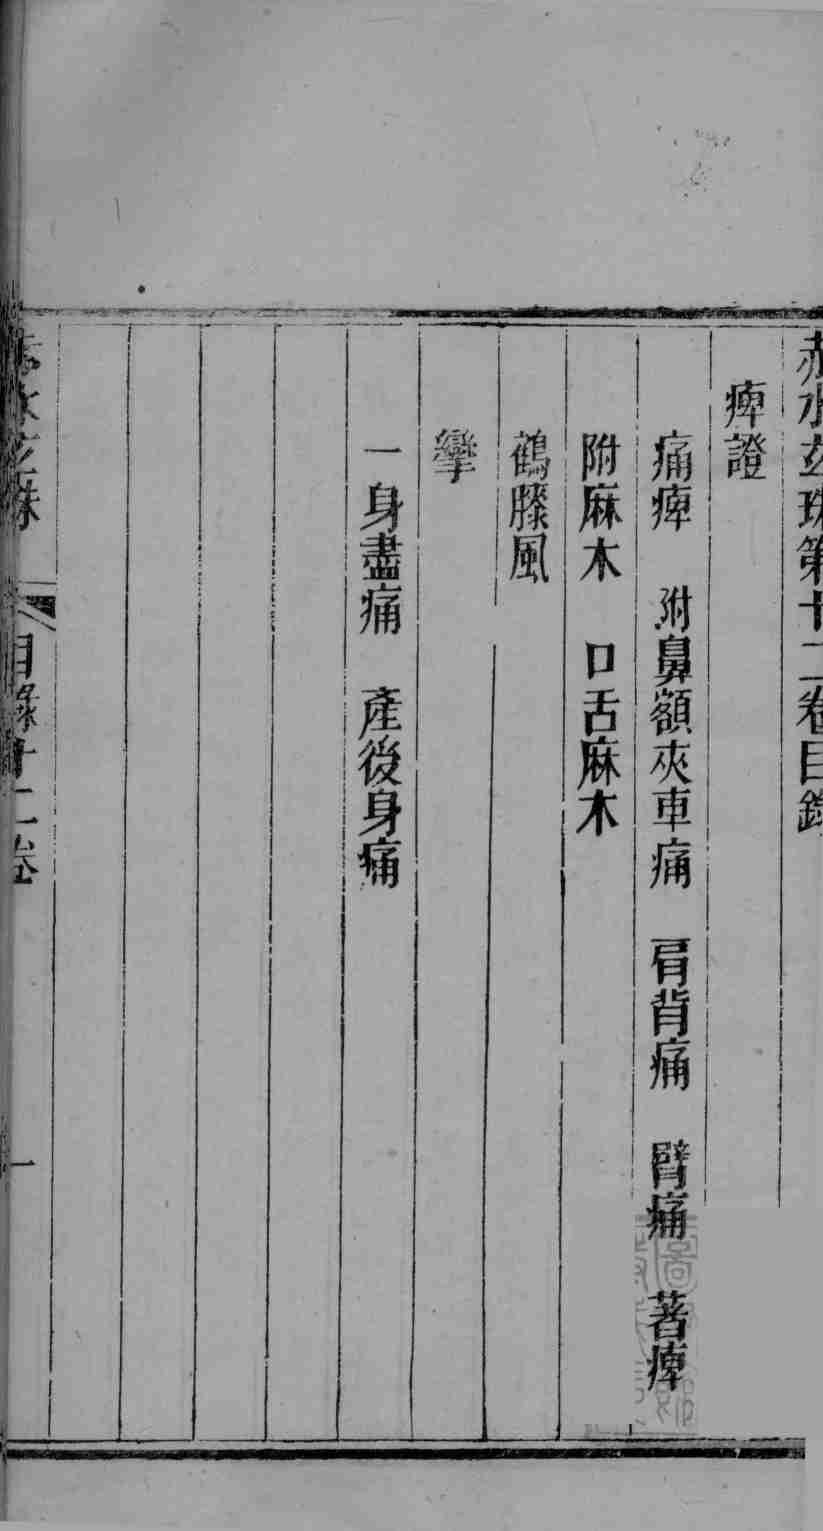 赤水玄珠第十二卷目錄
痺證
痛痺 附鼻額夾車痛 肩背痛 臂痛 著痺
附麻木 口舌麻木
鶴膝風
攣
一身盡痛 產後身痛
赤水玄珠 目錄十二卷 一